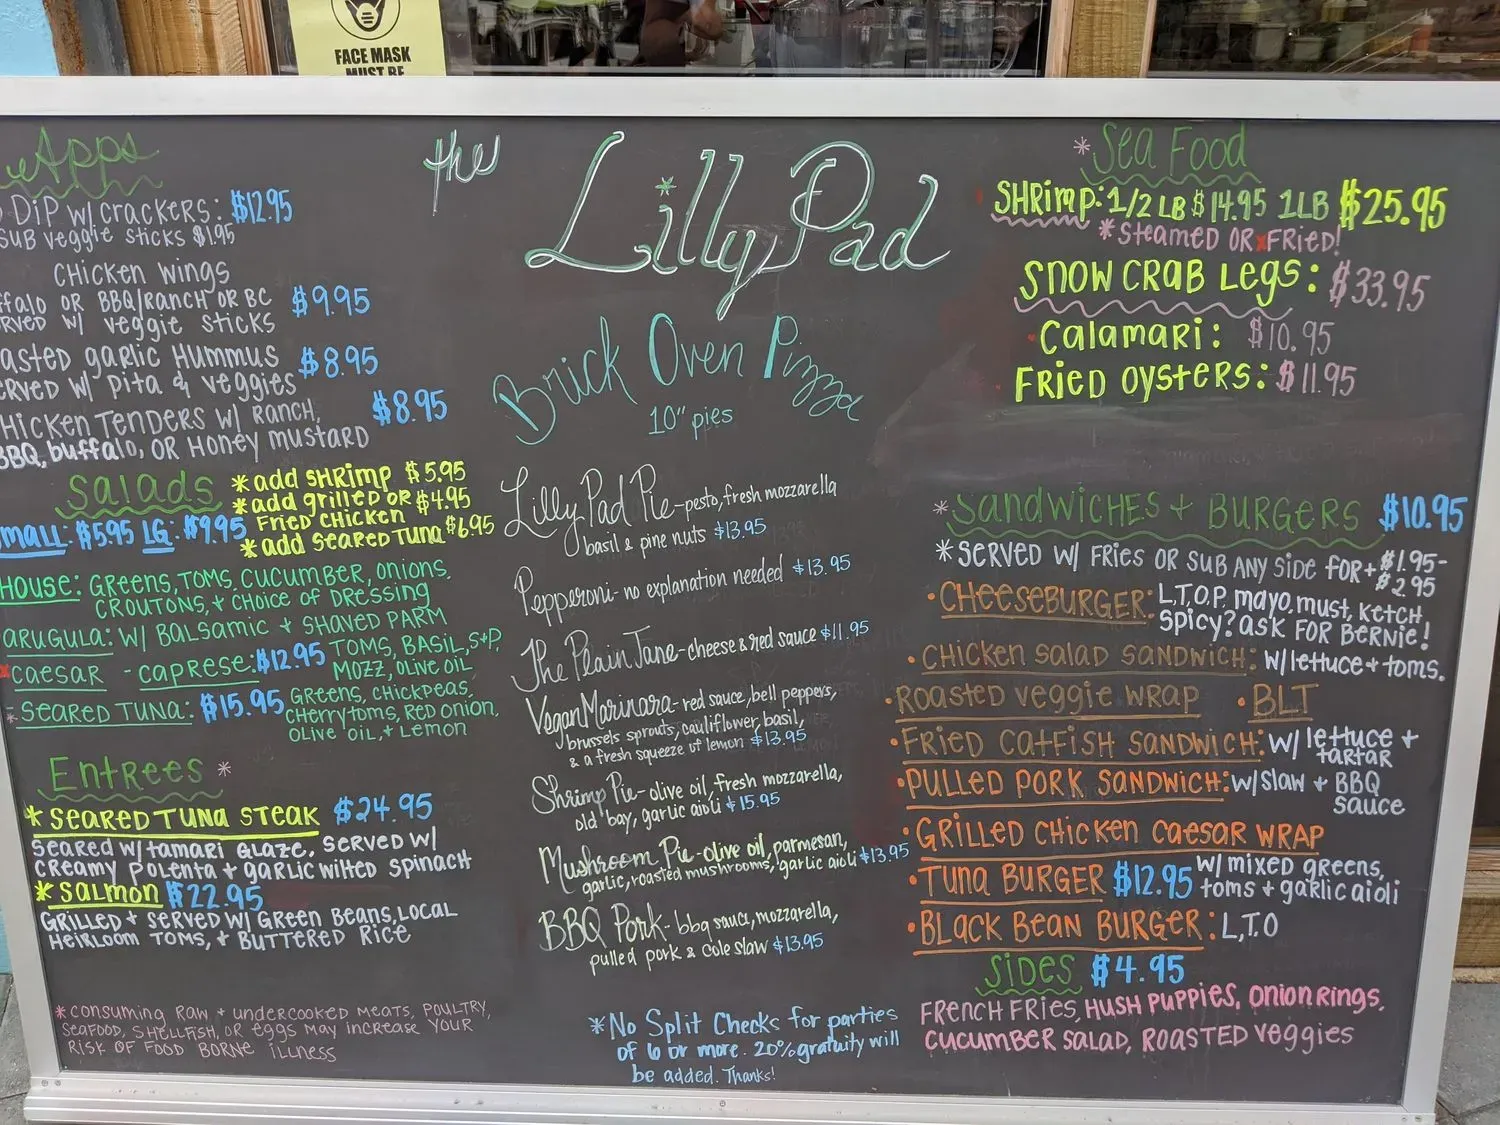 FACE MASK
MUST BE
Apps
DiP w/ crackers: $12.95
SUB veggie sticks $1.95
CHICKEN WINGS
OR BBQ/RANCH OR BC $9.95
w/ veggie sticks
garlic Hummus $8.95
w/ pita & veggies
TENDERS w/ RANCH, $8.95
BBQ, buffalo, OR HONEY mustard
Salads
*add SHRimp $5.95
*add grilled OR $4.95
Fried chicken
*add seared tuna $6.95
small: $5.95 LG: $9.95
HOUSE: GREENS, TOMS, CUCUMBER, ONIONS,
CROUTONS, + CHOICE OF DRESSING
ARUGULA: W/ BALSAMIC + SHAVED PARM
*caesar - caprese: $12.95 TOMS, BASIL, S+P,
MOZZ, OLIVE OIL
- SEARED TUNA: $15.95 GREENS, CHICKPEAS,
CHERRY TOMS, RED ONION,
OLIVE OIL, + LEMON
Entrees *
*SEARED TUNA STEAK $24.95
SEARED W/ tamari GLAZE, SERVED W/
CREAMY POLENTA + GARLIC WILTED SPINACH
*SALMON $22.95
GRILLED + SERVED W/ GREEN BEANS, LOCAL
HEIRLOOM TOMS, + BUTTERED RICE
*CONSUMING RAW + UNDERCOOKED MEATS, POULTRY,
SEAFOOD, SHELLFISH, OR EGGS MAY INCREASE YOUR
RISK OF FOOD BORNE ILLNESS
the Lilly Pad
Brick Oven Pizza
10" pies
Lilly Pad Pie - pesto, fresh mozzarella
basil & pine nuts $13.95
Pepperoni - no explanation needed $13.95
The Plain Jane - cheese & red sauce $11.95
Vegan Marinara - red sauce, bell peppers,
brussels sprouts, cauliflower, basil,
& a fresh squeeze of lemon $13.95
Shrimp Pie - olive oil, fresh mozzarella,
old bay, garlic aioli $15.95
Mushroom Pie - olive oil, parmesan,
garlic, roasted mushrooms, garlic aioli $13.95
BBQ Pork - bbq sauce, mozzarella,
pulled pork & cole slaw $13.95
*No Split Checks for parties
of 6 or more. 20% gratuity will
be added. Thanks!
*Sea Food
SHRimp: 1/2 LB $14.95 1LB $25.95
*STEAMED OR FRIED!
SNOW CRAB Legs: $33.95
Calamari: $10.95
FRIED OYSTERS: $11.95
*SANDWICHES + BURGERS $10.95
*SERVED W/ FRIES OR SUB ANY SIDE FOR + $1.95-
$2.95
•CHEESEBURGER: L,T,O,P, mayo, must, ketch
SPICY? ask FOR BERNIE!
•CHICKEN SALAD SANDWICH: w/ lettuce + toms.
•ROASTED veggie WRAP •BLT
•FRIED CATFISH SANDWICH: w/ lettuce +
tartar
•PULLED PORK SANDWICH: w/ slaw + BBQ
sauce
•GRILLED CHICKEN CAESAR WRAP
•TUNA BURGER $12.95 w/ mixed greens,
toms + garlic aioli
•BLACK BEAN BURGER: L,T,O
SIDES $4.95
FRENCH FRIES, HUSH PUPPIES, ONION RINGS,
CUCUMBER SALAD, ROASTED veggies